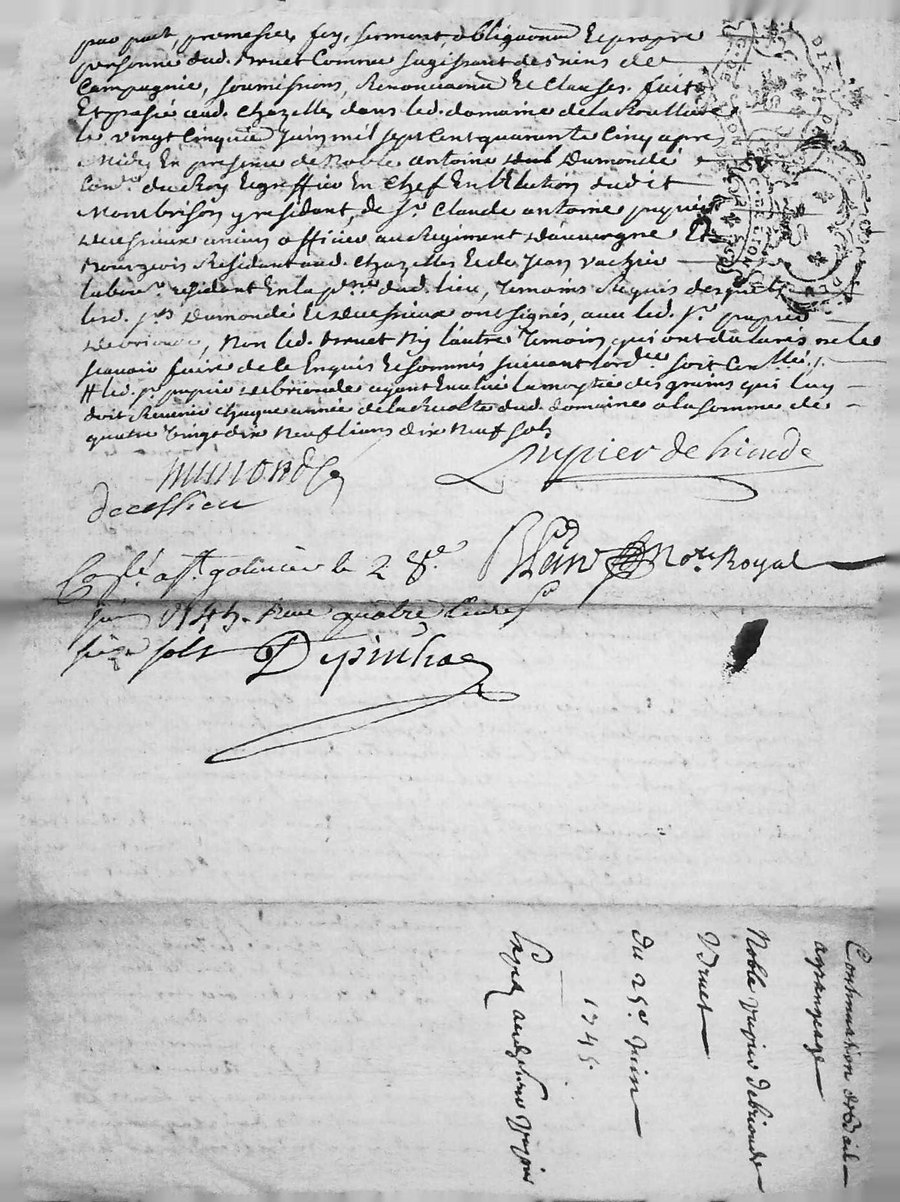 par pact, promesses, foy, serment, obligaõn de propre
personne dud. Bruet comme sagissant des siens de
Campagnie, soumissions, Renonciaõns Et Clauses. fait
Et passé aud. Chazelles dans led. domaine de la
le vingt Cinquie Juin mil sept Cent quarante Cinq apres
Midy En presence de Noble antoine Dumondé
Con.er du Roy Et greffier En Chef En l'Election dudit
Montbrison y residant, de S.r Claude antoine
ancien officier au Regiment Dauvergne Et
Bourgeois Residant aud. Chazelles Et de Jean Vachier
labour.r residant En la p.sse dud. lieu, Temoins Requis desquels
lesd. s.rs Dumondé Et ont signés, avec led. S.r pupier
debrioude, Non led. Bruet Ny l'autre Temoin qui ont déclarés ne le
scavoir faire de ce Enquis Et sommés suivant l'ord.ce soit Con.llé
led. s.r pupier debrioude ayant Evalué la moytié des grains qui luy
doit Revenir chaque année de la Recolte dud. domaine a la somme de
quatre vingt dix Neuf livres dix Neuf sols
Dumondé pupier de brioude
decessieu
Con.lé a s.t galmier le 28.e Not.re Royal
juin 1745. Reçu quatre livres
seize sols
Continuation de Bail
a grangeage
Noble pupier debrioude
Bruet
du 25.e Juin
1745.